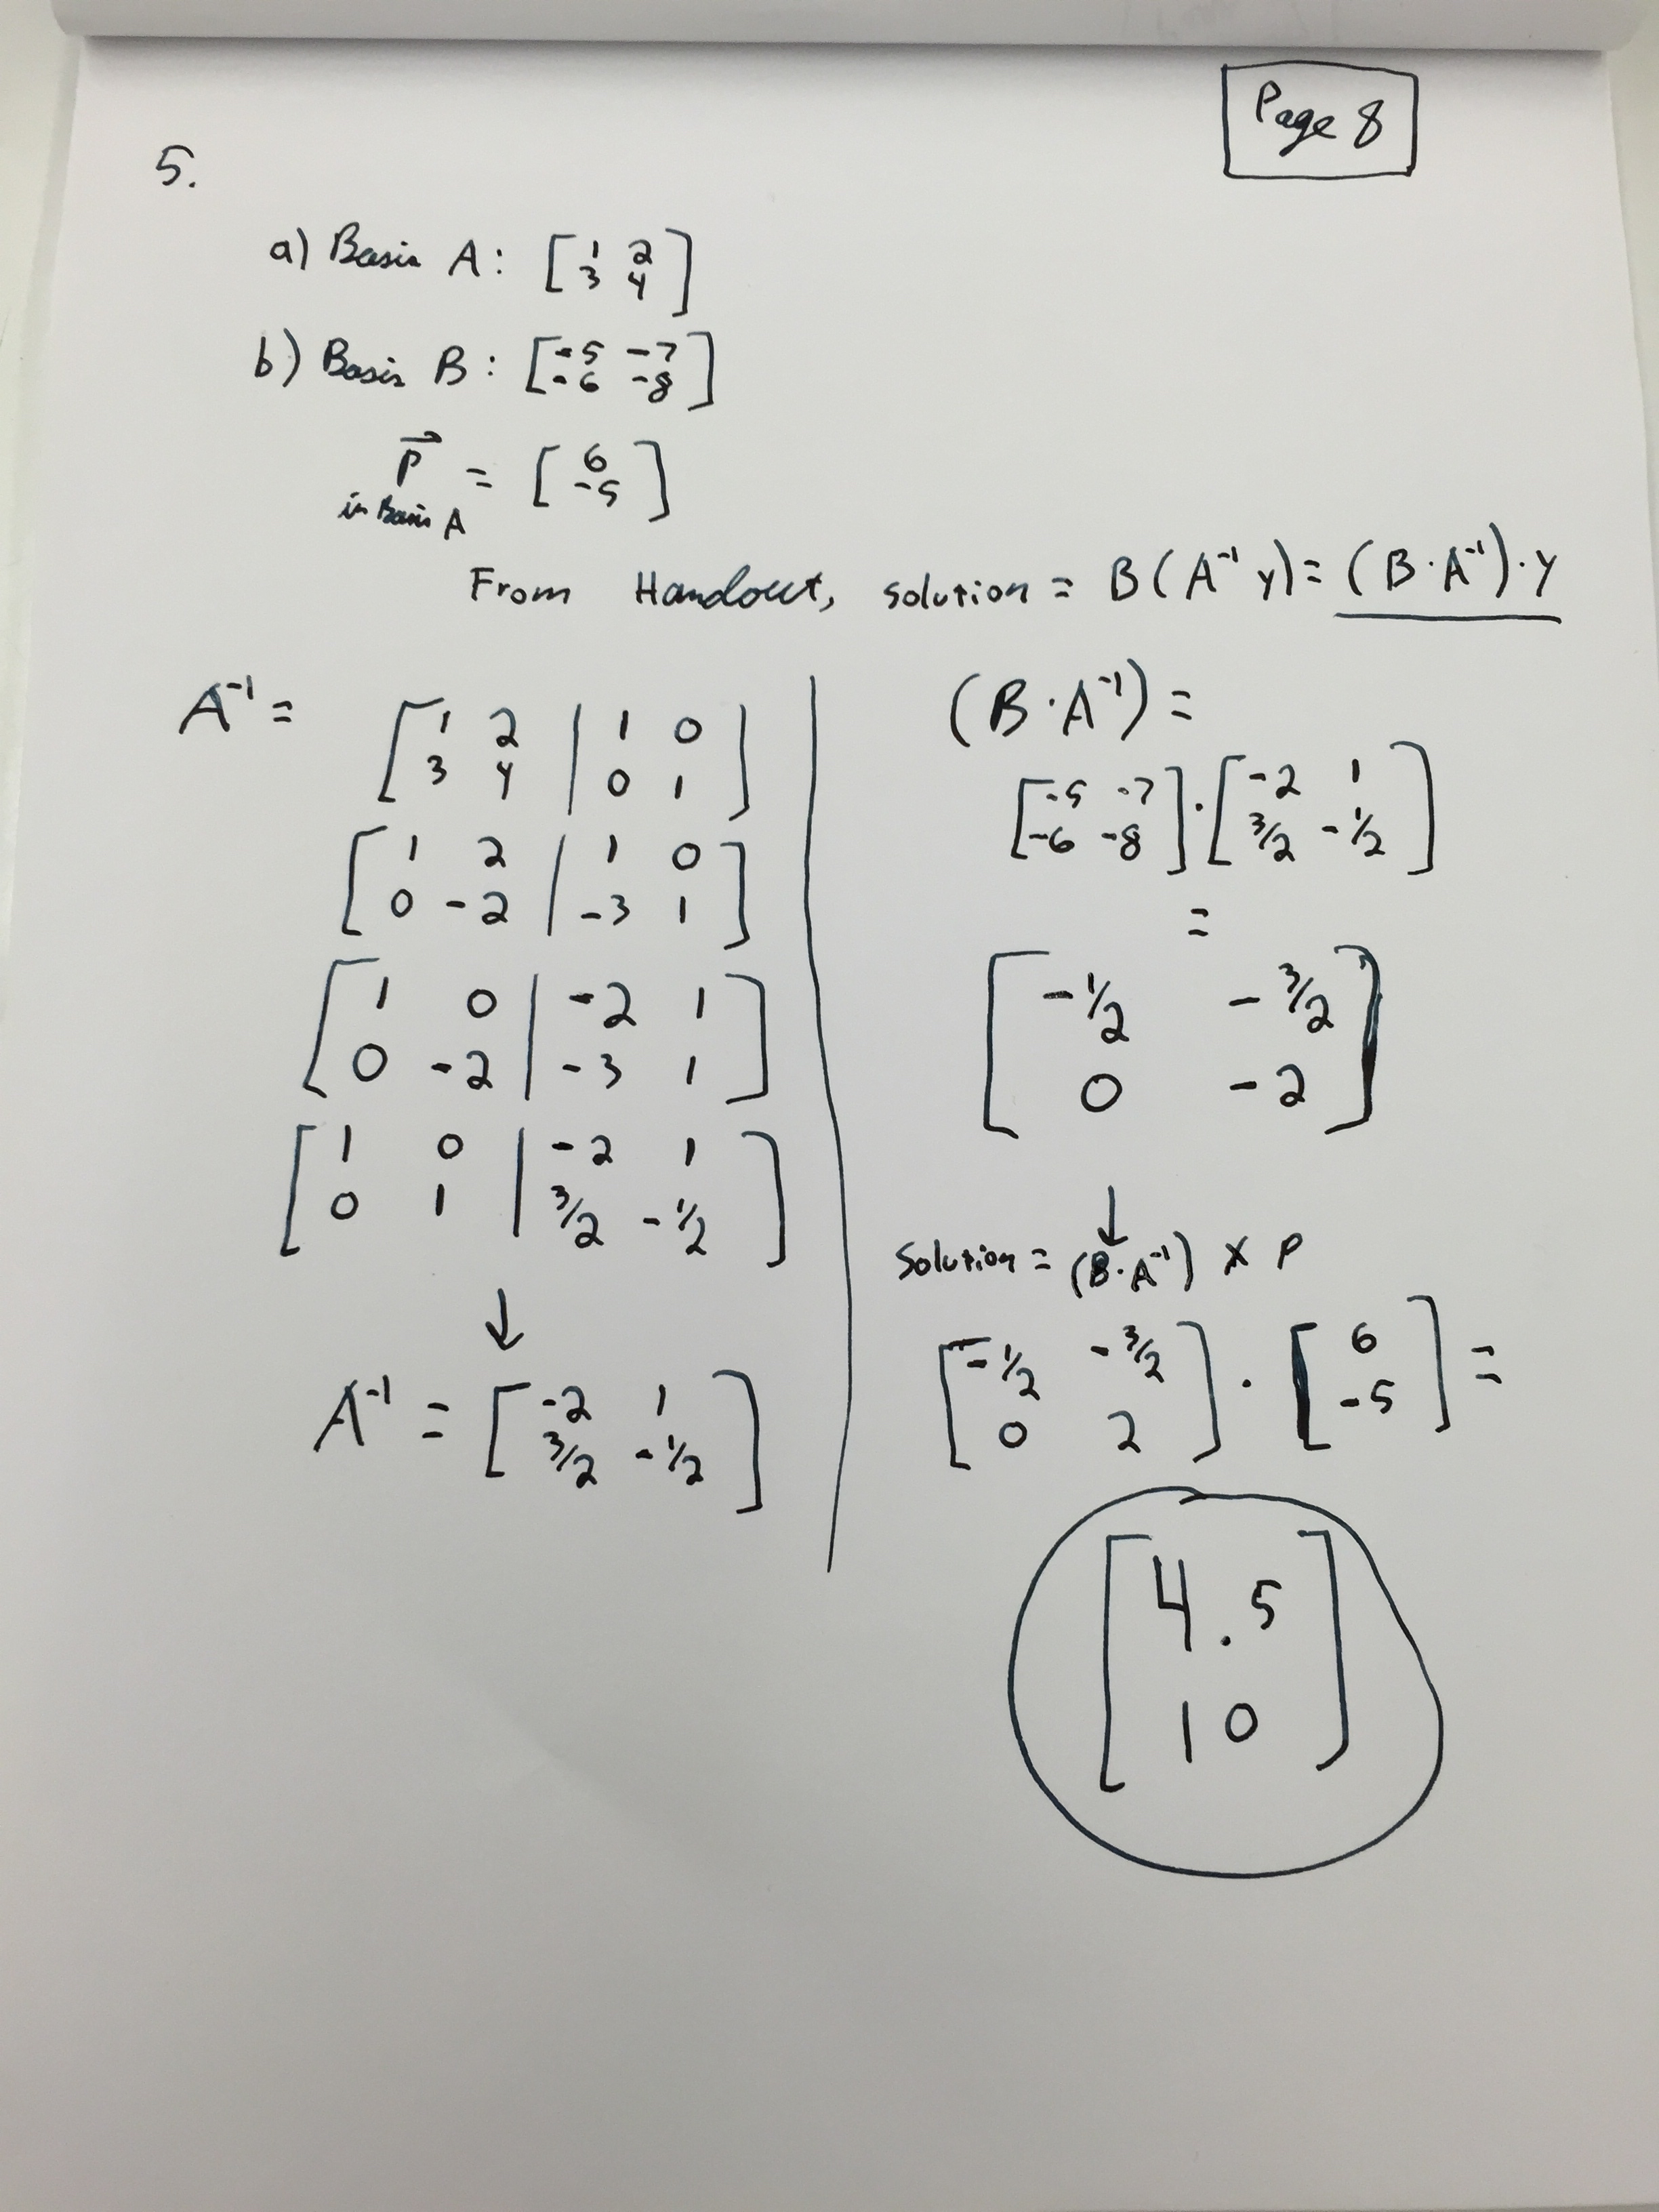 Page 8
5.
a) Basis A: [ 1 2
3 4 ]
b) Basis B: [ -5 -7
-6 -8 ]
P⃗ = [ 6
-5 ]
in Basis A
From Handout, solution = B(A⁻¹ y) = (B·A⁻¹)·y
A⁻¹ =
[ 1 2 | 1 0
3 4 | 0 1 ]
[ 1 2 | 1 0
0 -2 | -3 1 ]
[ 1 0 | -2 1
0 -2 | -3 1 ]
[ 1 0 | -2 1
0 1 | 3/2 -1/2 ]
↓
A⁻¹ = [ -2 1
3/2 -1/2 ]
(B·A⁻¹) =
[ -5 -7 ] · [ -2 1 ]
[ -6 -8 ] [ 3/2 -1/2 ]
=
[ -1/2 -3/2
0 -2 ]
↓
Solution = (B·A⁻¹) × P
[ -1/2 -3/2 ] · [ 6 ] =
[ 0 2 ] [ -5 ]
[ 4.5
10 ]